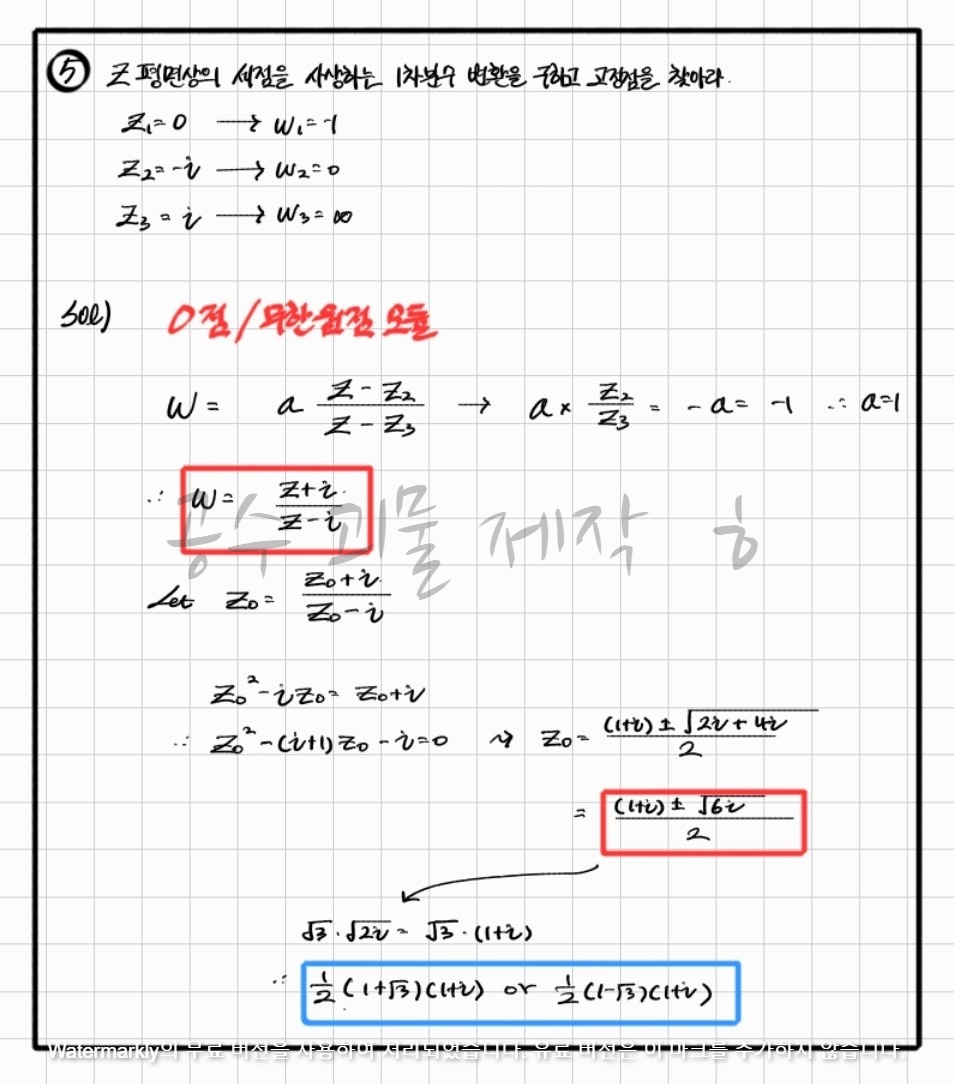 ⑤ Z 평면상의 세점을 사상하는 1차분수 변환을 구하고 고정점을 찾아라.
Z₁=0 → W₁=-1
Z₂=-i → W₂=0
Z₃=i → W₃=∞
Sol) 0점/무한원점 모듈
W = a (Z-Z₂)/(Z-Z₃) → a × Z₂/Z₃ = -a = -1 ∴ a=1
∴ W = (Z+i)/(Z-i)
공수 괴물 제작 ㅎ
Let Z₀ = (Z₀+i)/(Z₀-i)
Z₀²-iZ₀ = Z₀+i
∴ Z₀²-(i+1)Z₀-i=0 ⇝ Z₀ = ((1+i) ± √(2i+4i))/2
= ((1+i) ± √(6i))/2
√3·√(2i) = √3·(1+i)
∴ 1/2(1+√3)(1+i) or 1/2(1-√3)(1+i)
Watermarkly의 무료 버전을 사용하여 처리되었습니다. 유료 버전은 이 마크를 추가하지 않습니다.